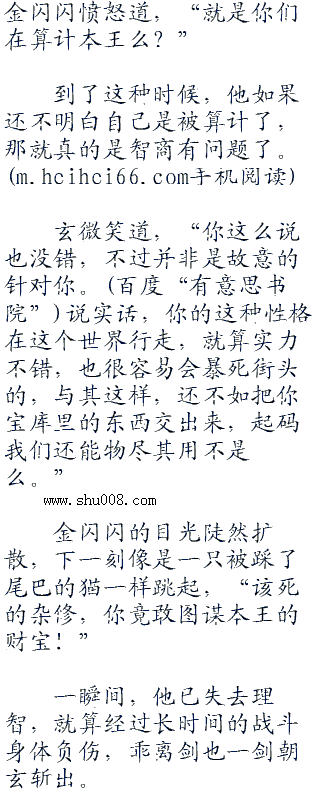 金闪闪愤怒道，“就是你们
在算计本王么？”
到了这种时候，他如果
还不明白自己是被算计了，
那就真的是智商有问题了。
(m.hcihci66.com手机阅读)
玄微笑道，“你这么说
也没错，不过并非是故意的
针对你。(百度“有意思书
院”)说实话，你的这种性格
在这个世界行走，就算实力
不错，也很容易会暴死街头
的，与其这样，还不如把你
宝库里的东西交出来，起码
我们还能物尽其用不是
么。”
www.shu008.com
金闪闪的目光陡然扩
散，下一刻像是一只被踩了
尾巴的猫一样跳起，“该死
的杂修，你竟敢图谋本王的
财宝！”
一瞬间，他已失去理
智，就算经过长时间的战斗
身体负伤，乖离剑也一剑朝
玄斩出。